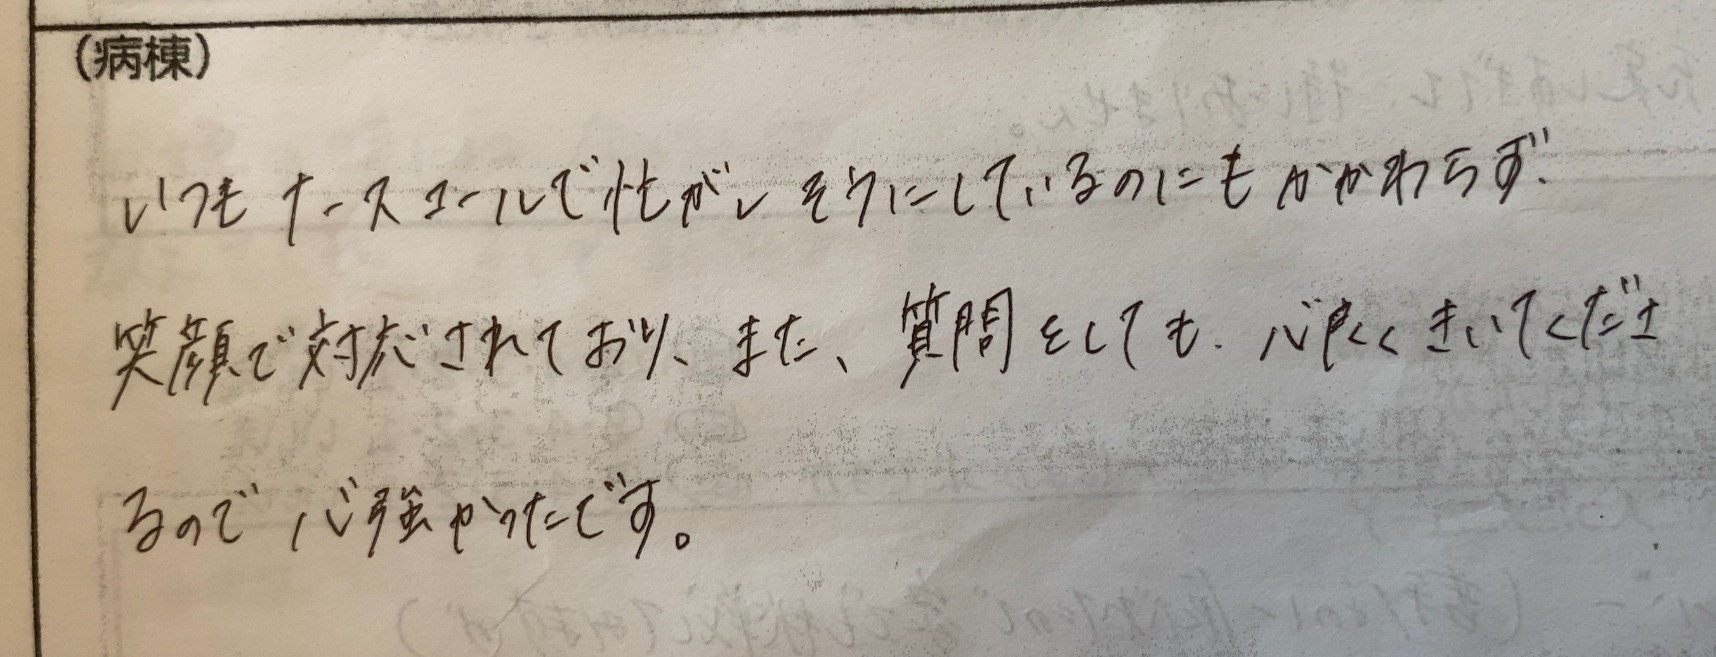 (病棟)
いつもナースコールで忙がしそうにしているのにもかかわらず、
笑顔で対応されており、また、質問をしても、心良くきいてくださ
るので心強かったです。